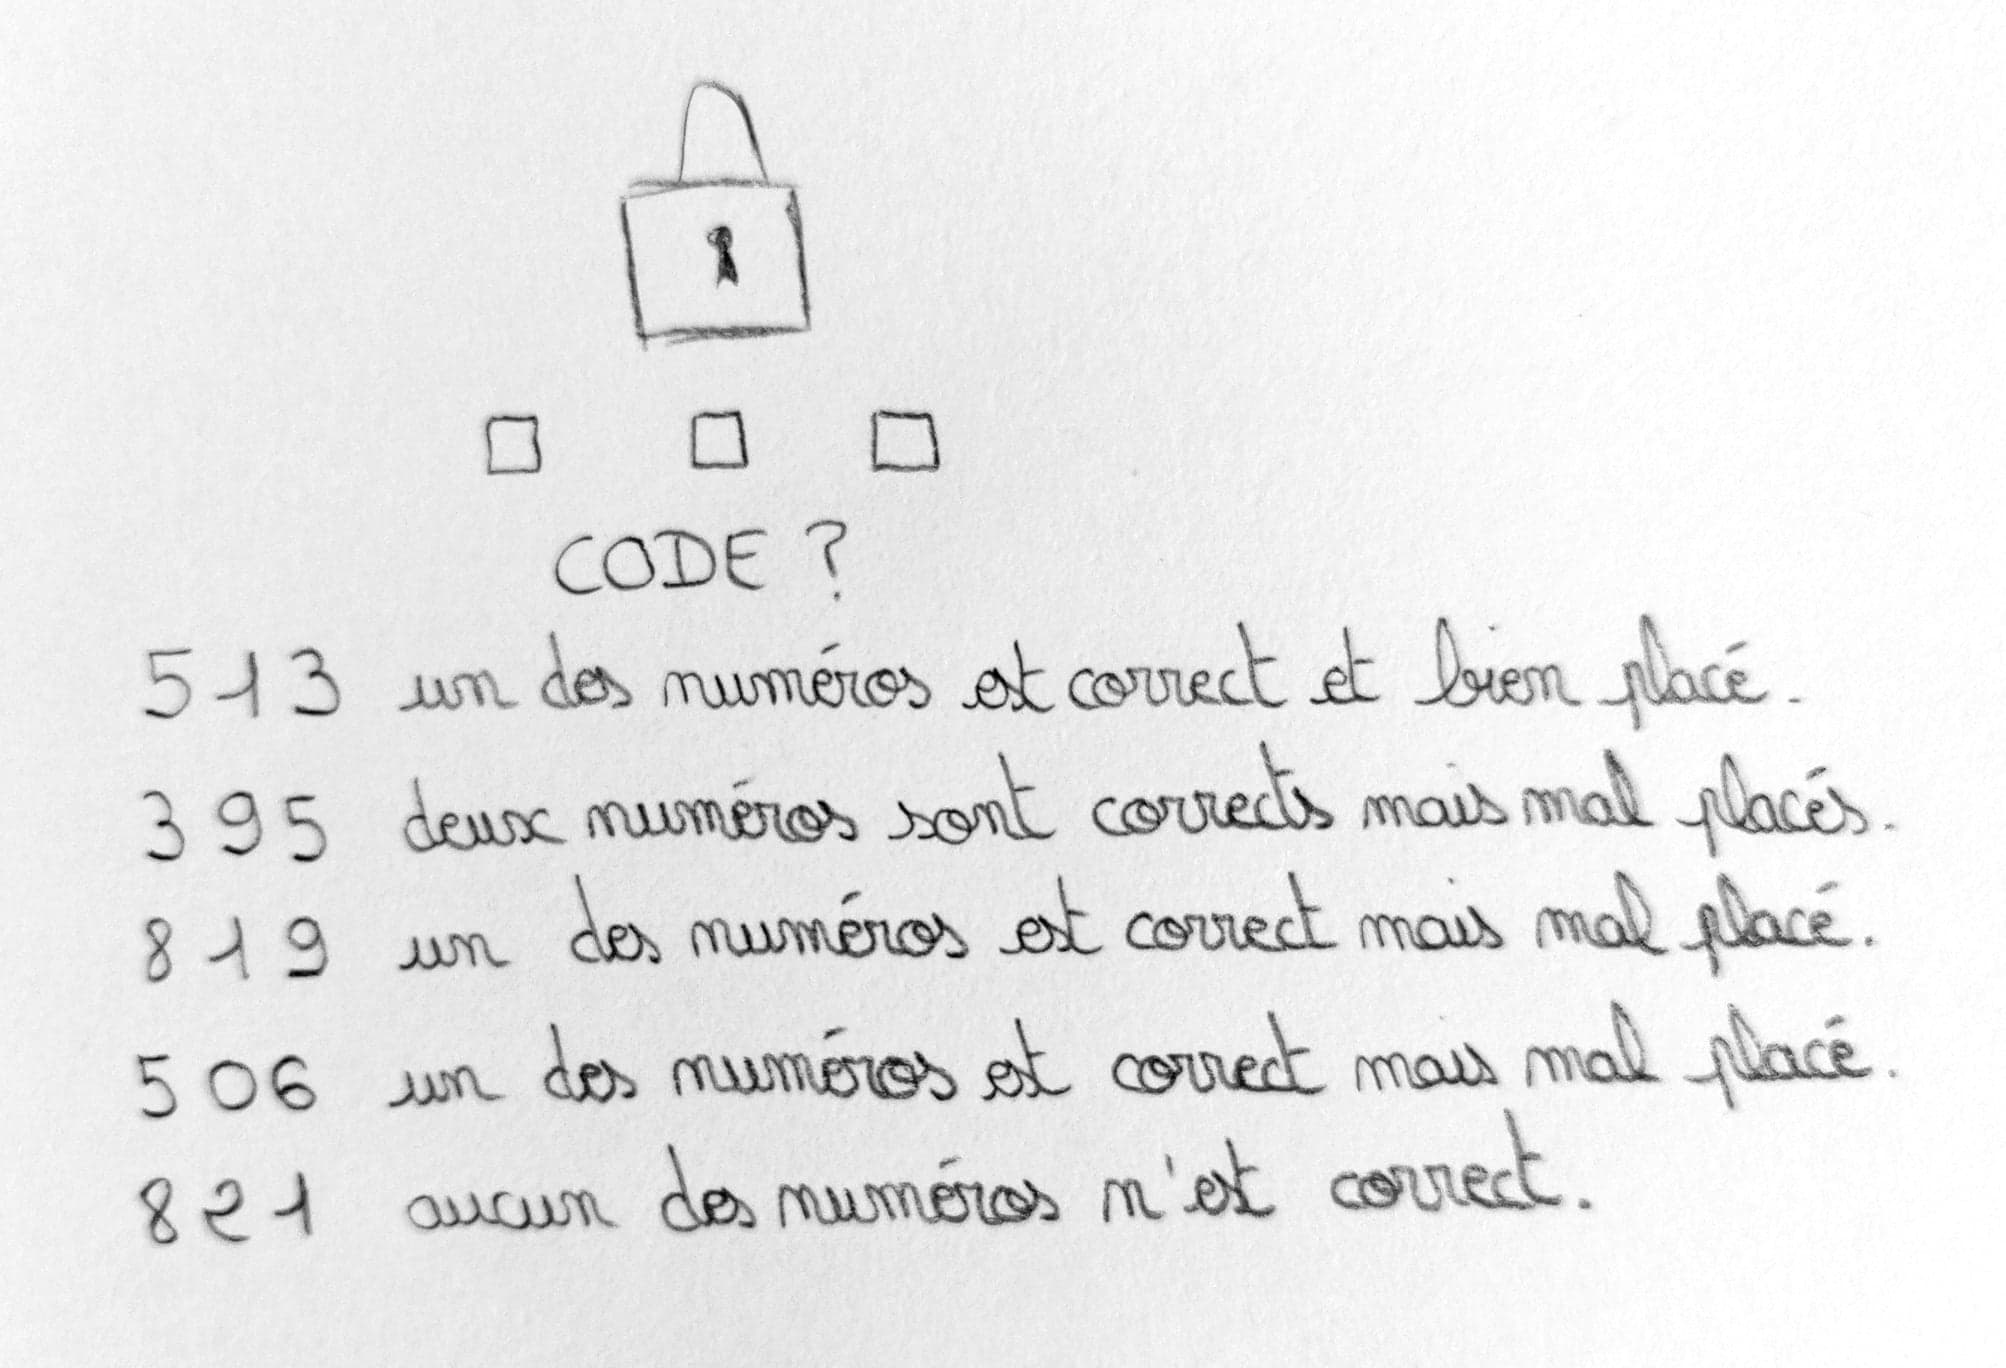 CODE ?
513 un des numéros est correct et bien placé.
395 deux numéros sont corrects mais mal placés.
819 un des numéros est correct mais mal placé.
506 un des numéros est correct mais mal placé.
821 aucun des numéros n'est correct.